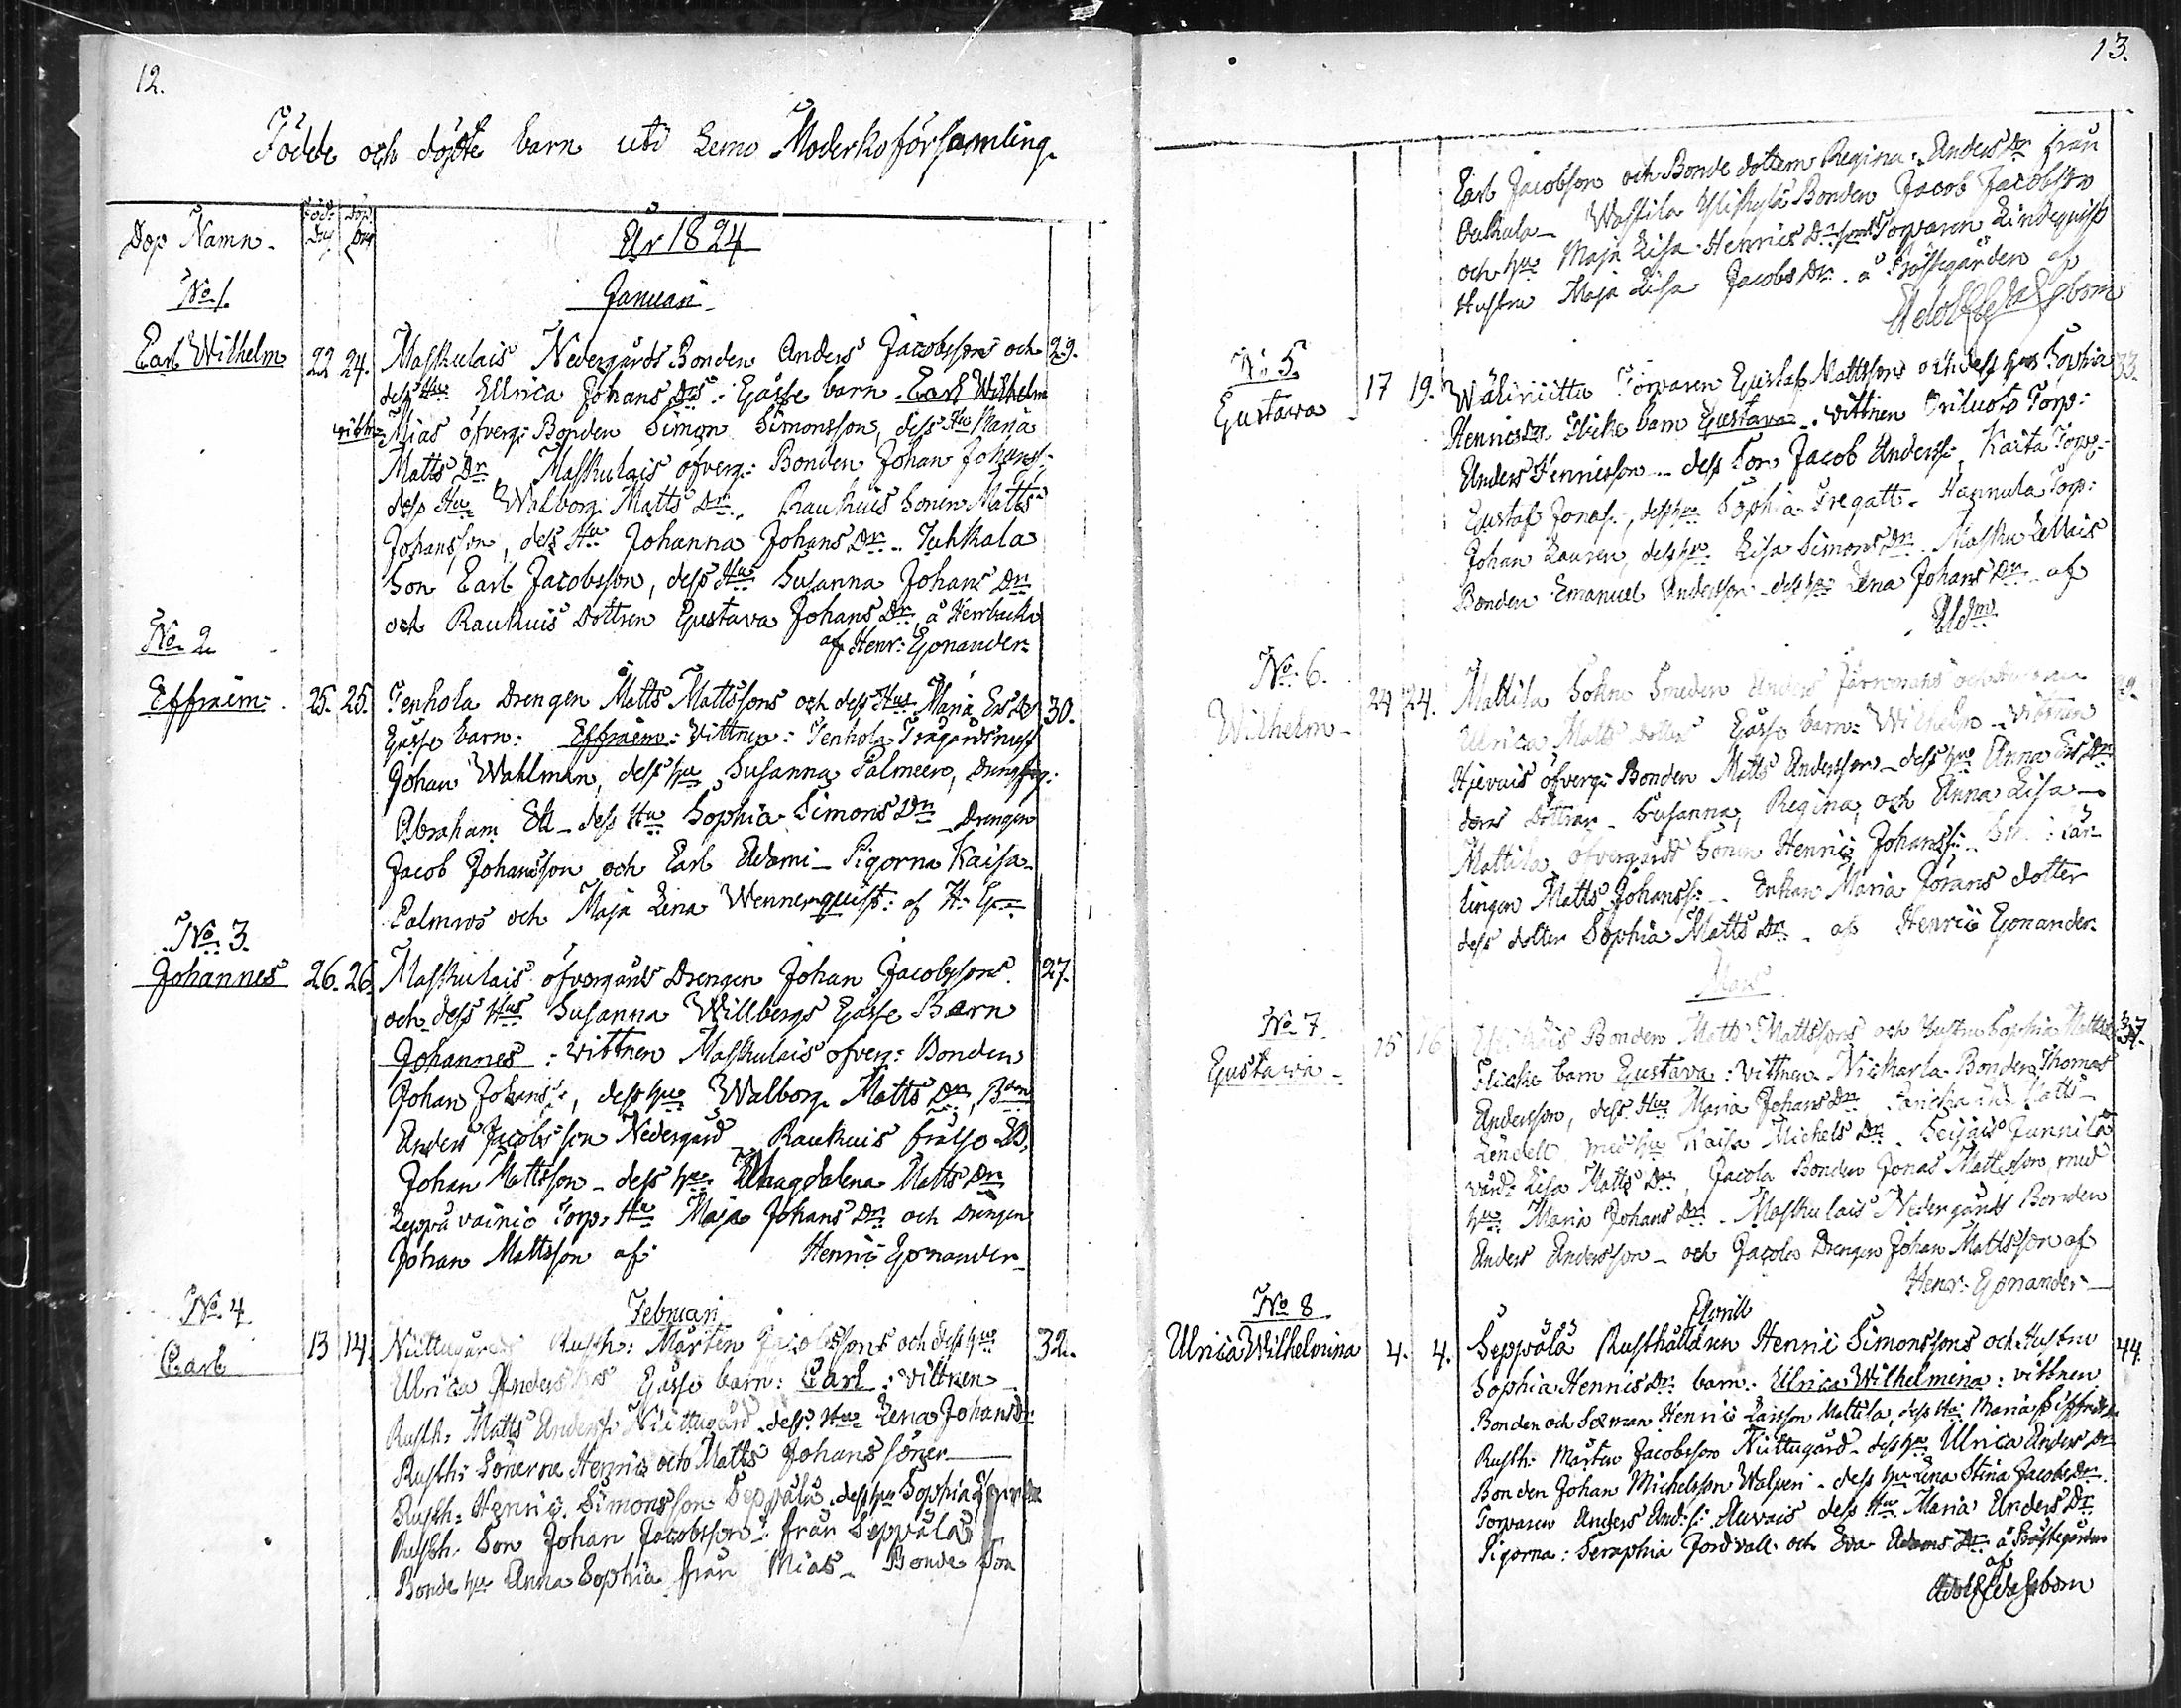 12.
Födde och döpte barn uti Lemo Moderkoförsamling.
Dop Namn. Föd: Dag Döp: Dag År 1824
No 1. Januari
Carl Wilhelm 22 24. Maskulais Nedergårds Bonden Anders Jacobssons och 29.
dess Hu Ulrica Johans Drs Gosse barn Carl Wilhelm
vittn: Mias öfverg: Bonden Simon Simonsson, dess Hu Maria
Matts Dr Maskulais öfverg: Bonden Johan Johanss:
dess Hu Walborg Matts Dr. Raukuis Sonen Matts
Johansson, dess Hu Johanna Johans Dr. Juhkala
Son Carl Jacobsson, dess Hu Susanna Johans Dr
och Raukuis Dottren Gustava Johans Dr å Herrbacka
No 2 af Henr: Gonander
Effraim 25. 25. Tenhola Drengen Matts Mattssons och dess Hus Maria Ers Drs 30.
Gosse barn: Effraim: vittnen: Tenhola Trägårdsmest
Johan Wahlman, dess hu Susanna Palmeen,
Abraham Ek dess Hu Sophia Simons Dr Drengen
Jacob Johansson och Carl Adami Pigorna Kaisa
Palmros och Maja Lena Wennerquist: af H. Gr
No 3.
Johannes 26. 26. Maskulais öfvergårds Drengen Johan Jacobssons 27.
och dess Hus Susanna Willbergs Gosse Barn
Johannes: vittnen Maskulais öfverg: Bonden
Johan Johanss:, dess hu Walborg Matts Dr, Bdn
Anders Jacobsson Nedergård Raukuis frälse B.
Johan Mattsson dess hu Magdalena Matts Dr
Torp: Hu Maja Johans Dr och Drengen
Johan Mattsson af Henric Gonander
No 4 Februari
Carl 13 14. Niittugårds Rusth: Mårten Jacobssons och dess hus 32.
Ulrica Anders Drs Gosse barn: Carl: vittnen
Rusth: Matts Anderss: Niittugård dess Hu Lena Johans Dr
Rusth: Sönerne Henric och Matts Johans söner
Rusth: Henric Simonsson Seppälä dess hu Sophia
Rusth: Son Johan Jacobsson från Seppälä
Bonde hu Anna Sophia från Mias Bonde Son
13.
Carl Jacobson och Bonde dottern Regina Anders Dr från
Bonden Jacob Jacobsson
och hu Maja Lisa Henrics Dr samt Torparen Lindequist
Hustru Maja Lisa Jacobs Dr. å Prästegården af

No 5.
Gustava 17 19. Torparen Gustaf Mattssons och dess hus Sophia 33.
Henrics Drs Flicke barn Gustava. vittnen Torp:
Anders Henricsson dess Son Jacob Anderss: Kaita Torp:
Gustaf Jonass:, dess hu Sophia Fregatt. Hannula Torp:
Johan Lauren, dess hu Lisa Simons Dr. Masku
Bonden Emanuel Andersson dess hu Lena Johans Dr af

No 6.
Wilhelm 24 24. Mattila Sokne Smeden Anders Järnmans och
Ulrica Matts dotters Gosse barn: Wilhelm. vittnen
öfverg: Bonden Matts Andersson dess hu Anna Ers Dr
deras Döttrar Susanna, Regina, och Anna Lisa
Mattila öfvergårds Sonen Henric Johanss: Lär-
lingen Matts Johanss: Enkan Maria Jörans dotter
dess dotter Sophia Matts Dr af Henric Gonander
Mars
No 7.
Gustava 15 16 Bonden Matts Mattssons och Hustru Sophia 37.
Flicke barn Gustava: vittnen Nickarla Bonden Thomas
Andersson, dess Hu Maria Johans Dr Matts
Lendell med hu Kaisa Michels Dr. Junnila
värd: Lisa Matts Dr, Jacola Bonden Jonas Mattsson, med
hu Maria Johans Dr. Maskulais Nedergårds Bonden
Anders Andersson och Jacola Drengen Johan Mattsson af
Henr: Gonander
No 8 April
Ulrica Wilhelmina 4. 4. Seppälä Rusthålldaren Henric Simonssons och Hustru 44.
Sophia Henrics Dr. barn: Ulrica Wilhelmina: vittnen
Bonden och Sexman Henric Larsson Mattila, dess Hu Maria
Rusth: Mårten Jacobsson Niittugård dess hu Ulrica Anders Dr
Bonden Johan Michelsson Walpen dess hu Lena Stina Jacobs Dr.
Torparen Anders And:s: dess Hu Maria Anders Dr
Pigorna: Seraphia Fordvall och Eva Adams Dr. å Prästegården
af